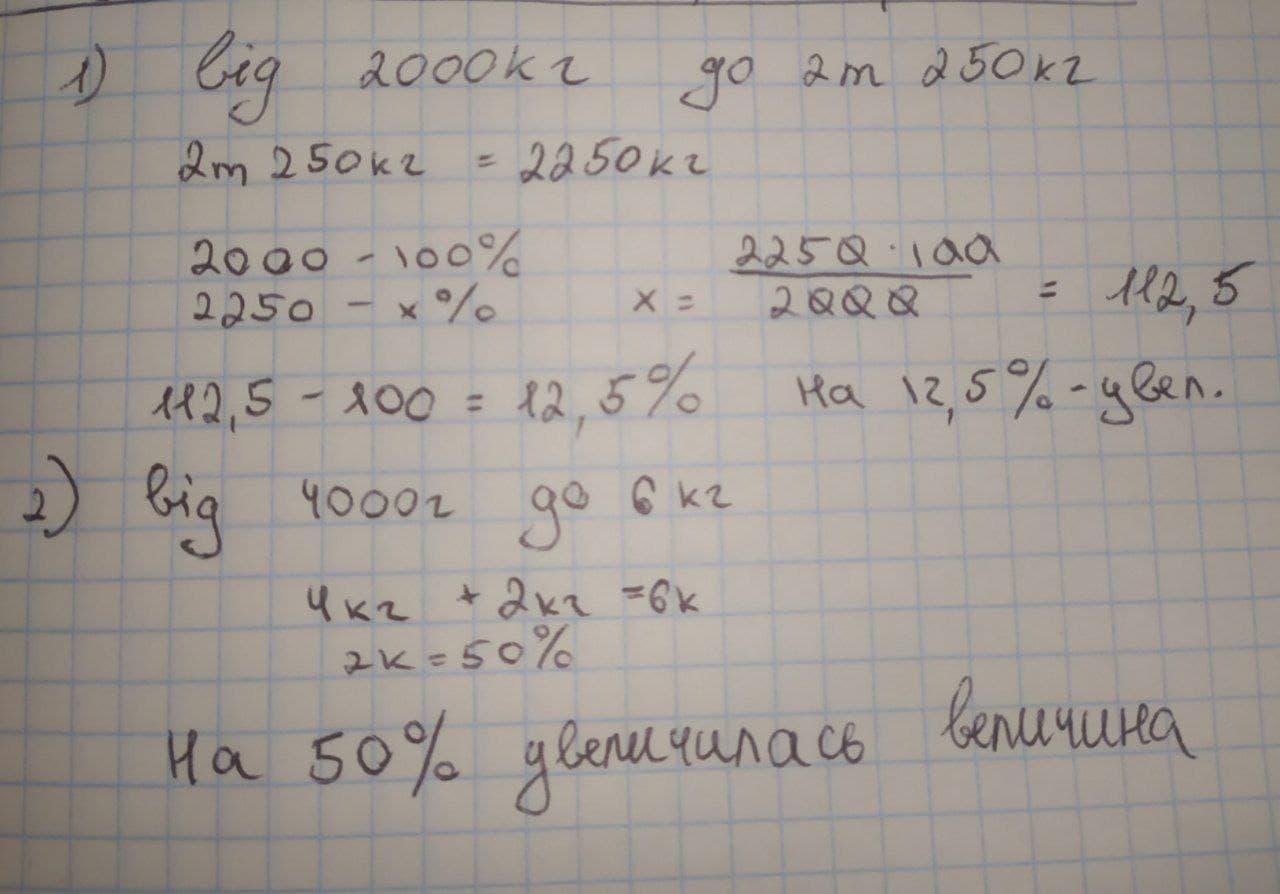 1) від 2000кг до 2т 250кг
2т 250кг = 2250кг
2000 - 100%
2250 - x% x = 2250 · 100 / 2000 = 112,5
112,5 - 100 = 12,5% На 12,5% - увел.
2) від 4000г до 6 кг
4кг + 2кг = 6к
2к = 50%
На 50% увеличилась величина